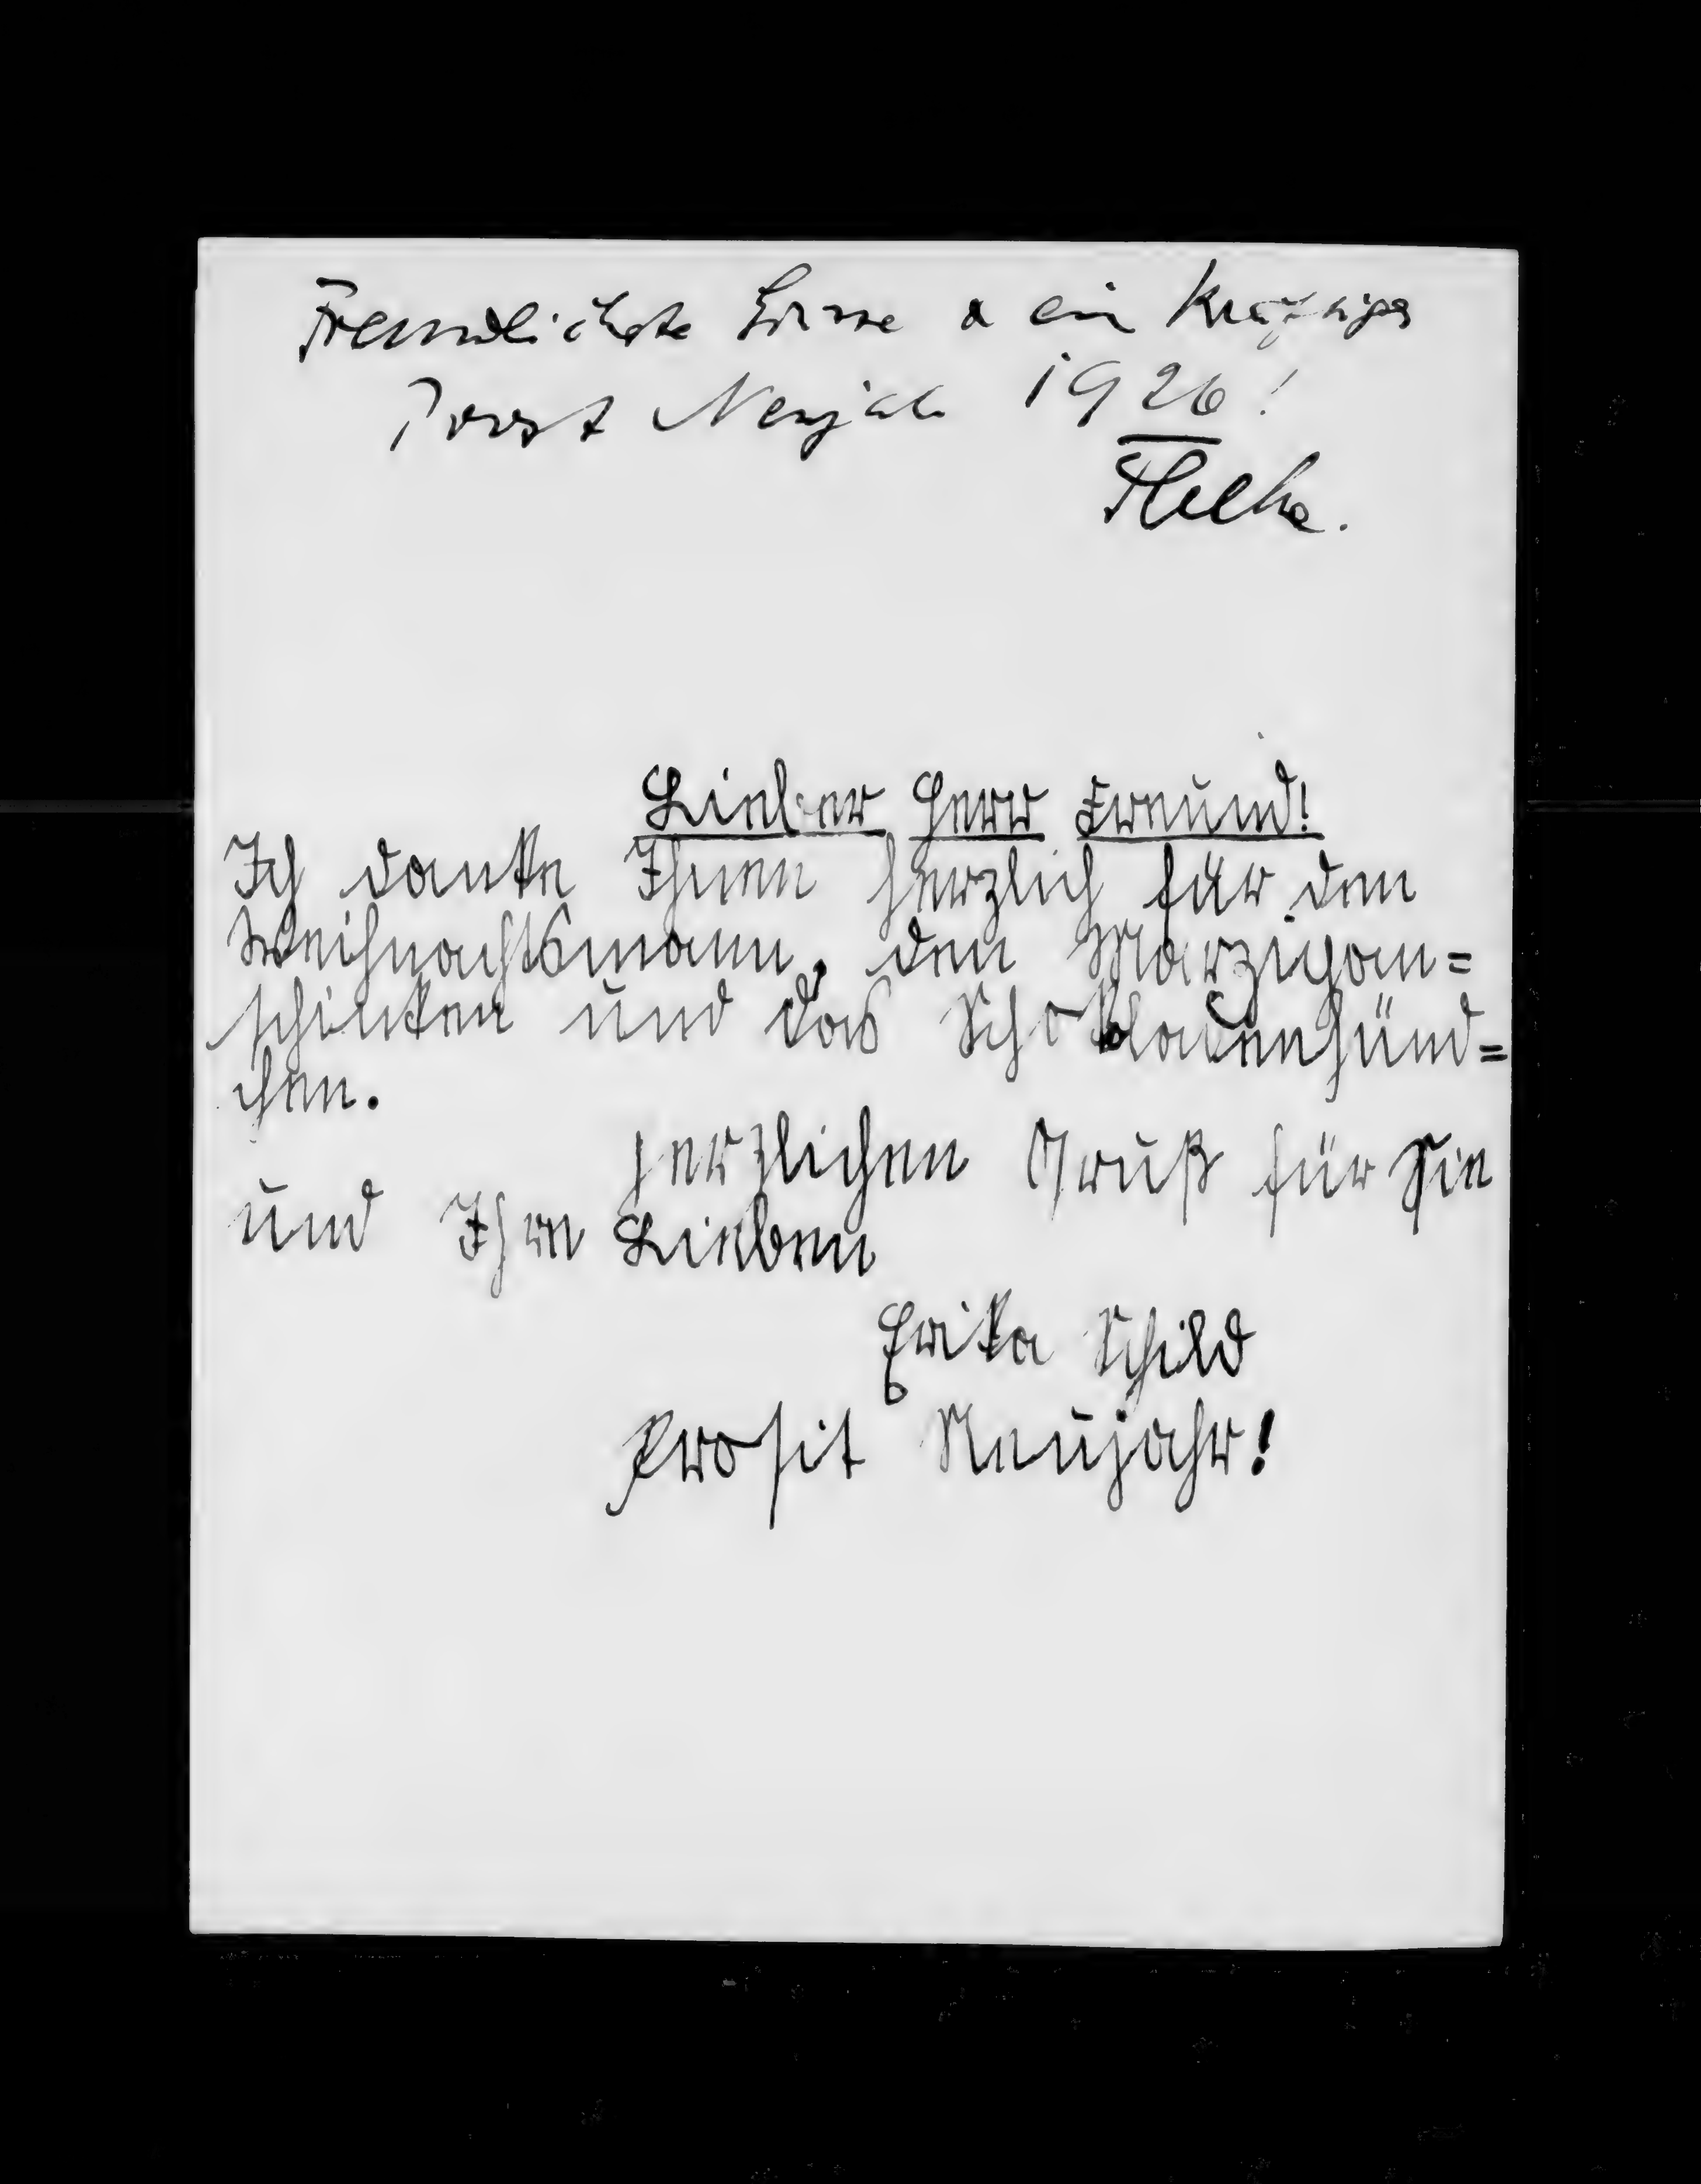 Freundlichste Grüsse & ein kräftiges
Prost Neujahr 1926!
Lieber Herr Freund!
Ich danke Ihnen herzlich für den
Weihnachtsmann, den Marzipan=
schinken und das Schokladenhünd=
chen.
Herzlichen Gruß für Sie
und Ihre Lieben
Erika Schild
Prosit Neujahr!